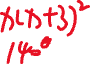 x(x+3)²
140°